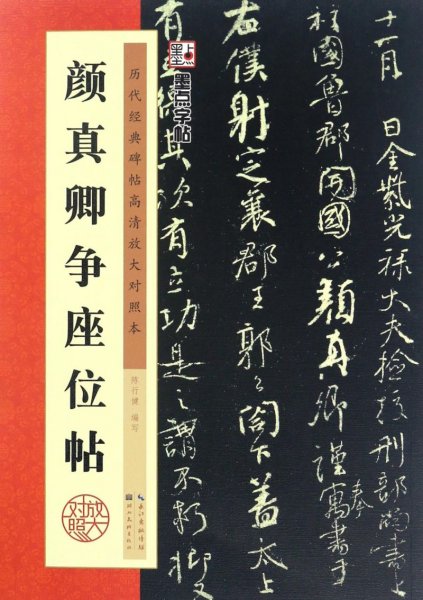 颜真卿争座位帖
放大
对照
历代经典碑帖高清放大对照本
陈行健 编写
长江出版传媒
湖北美术出版社
墨点
墨点字帖
十一月 日金紫光禄大夫检校刑部尚书上
柱国鲁郡开国公颜真卿谨奉寓书于
右仆射定襄郡王郭公阁下盖太上
有立德其次有立功是之谓不朽抑又